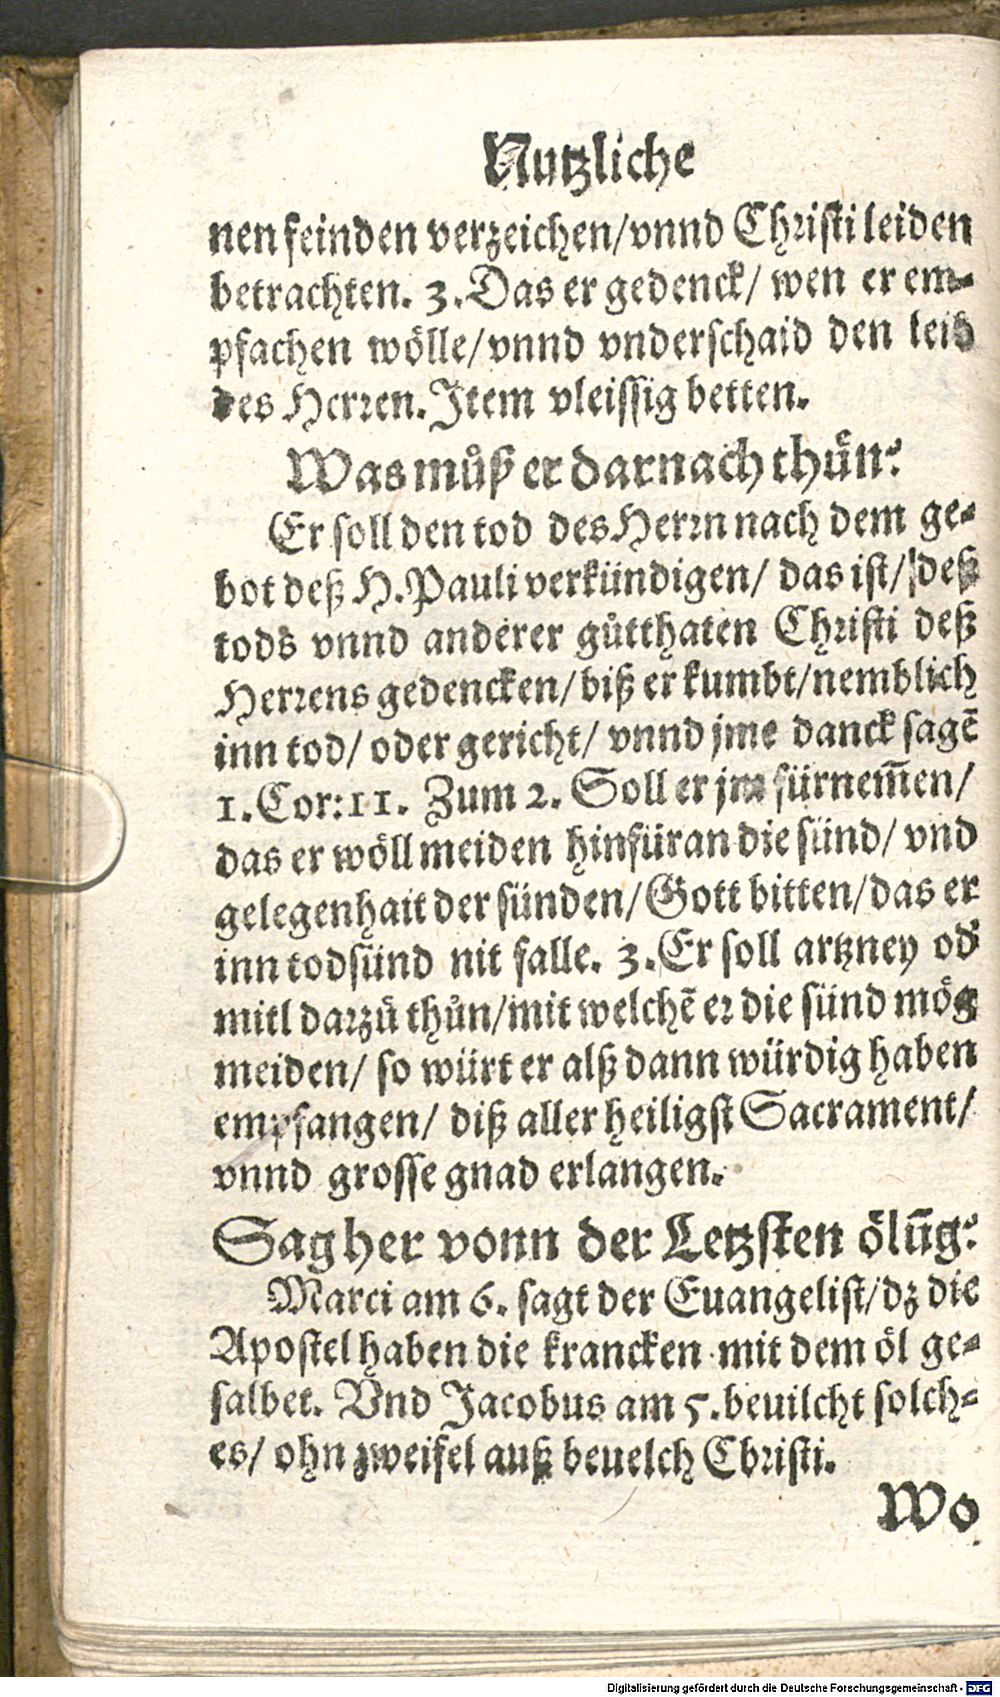 Nutzliche
nen feinden verzeichen/vnnd Christi leiden
betrachten. 3. Das er gedenck/ wen er em-
pfachen wölle/vnnd vnderschaid den leib
des Herren. Item vleissig betten.
Was můß er darnach thůn?
Er soll den tod des Herrn nach dem ge-
bot deß H. Pauli verkündigen/ das ist/ deß
tods vnnd anderer gůtthaten Christi deß
Herrens gedencken/biß er kumbt/nemblich
inn tod/ oder gericht/ vnnd jme danck sagē
1. Cor: 11. Zum 2. Soll er jm fürnem̄en/
das er wöll meiden hinfüran die sünd/ vnd
gelegenhait der sünden/Gott bitten/das er
inn todsünd nit falle. 3. Er soll artzney od'
mitl darzů thůn/mit welchē er die sünd mög
meiden/ so würt er alß dann würdig haben
empfangen/ diß aller heiligst Sacrament/
vnnd grosse gnad erlangen.
Sag her vonn der Letzsten ölūg?
Marci am 6. sagt der Euangelist/dz die
Apostel haben die krancken mit dem öl ge-
salbet. Vnd Jacobus am 5. beuilcht solch-
es/ ohn zweifel auß beuelch Christi.
Wo
Digitalisierung gefördert durch die Deutsche Forschungsgemeinschaft - DFG